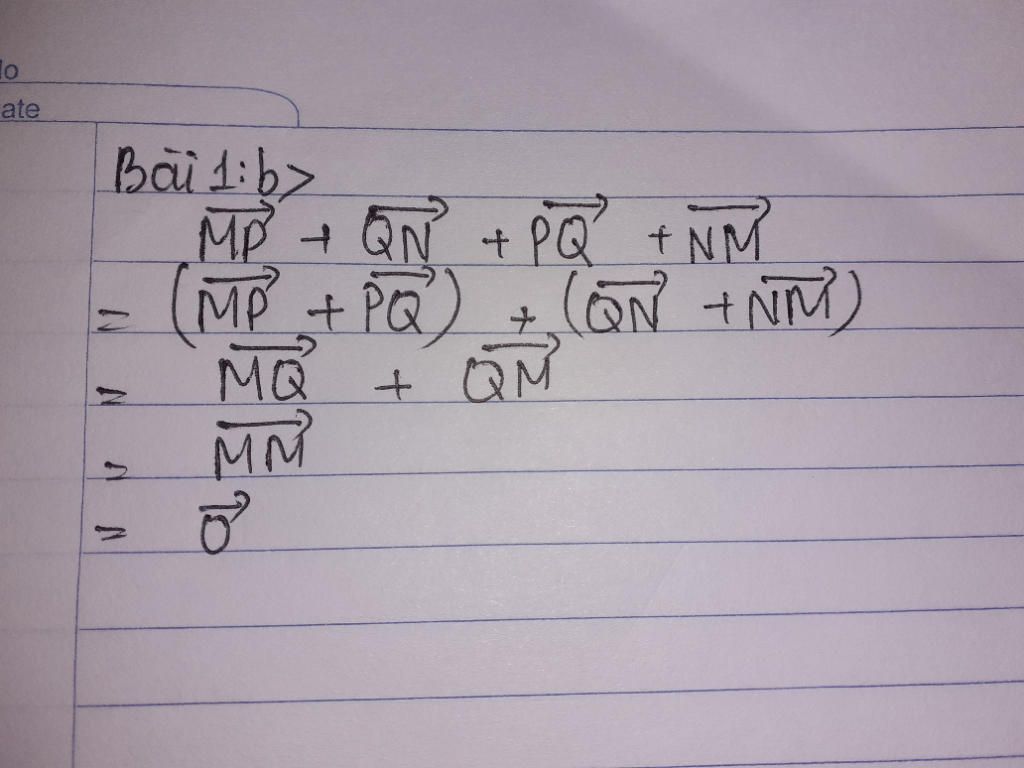 lo
ate
Bài 1: b>
$\overrightarrow{MP} + \overrightarrow{QN} + \overrightarrow{PQ} + \overrightarrow{NM}$
$= (\overrightarrow{MP} + \overrightarrow{PQ}) + (\overrightarrow{QN} + \overrightarrow{NM})$
$= \overrightarrow{MQ} + \overrightarrow{QM}$
$= \overrightarrow{MM}$
$= \overrightarrow{0}$